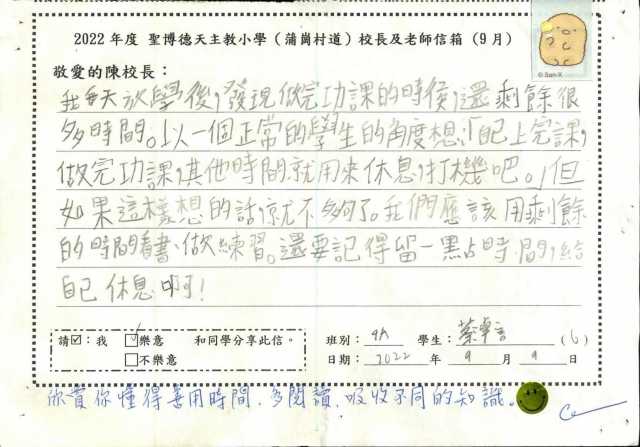 2022 年度 聖博德天主教小學（蒲崗村道）校長及老師信箱（9月）
© San-X
敬愛的陳校長：
我每天放學後，發現做完功課的時侯，還剩餘很
多時間。以一個正常的學生的角度想：「自己上完課，
做完功課，其他時間就用來休息，打機吧。」但
如果這樣想的話，就不夠了。我們應該用剩餘
的時間看書、做練習。還要記得留一點時間，給
自己休息啊！
請☑：我 ☑樂意 和同學分享此信。 班別： 4A 學生： 蔡 言 (6)
□不樂意 日期： 2022 年 9 月 9 日
欣賞你懂得善用時間，多閱讀，吸收不同的知識。